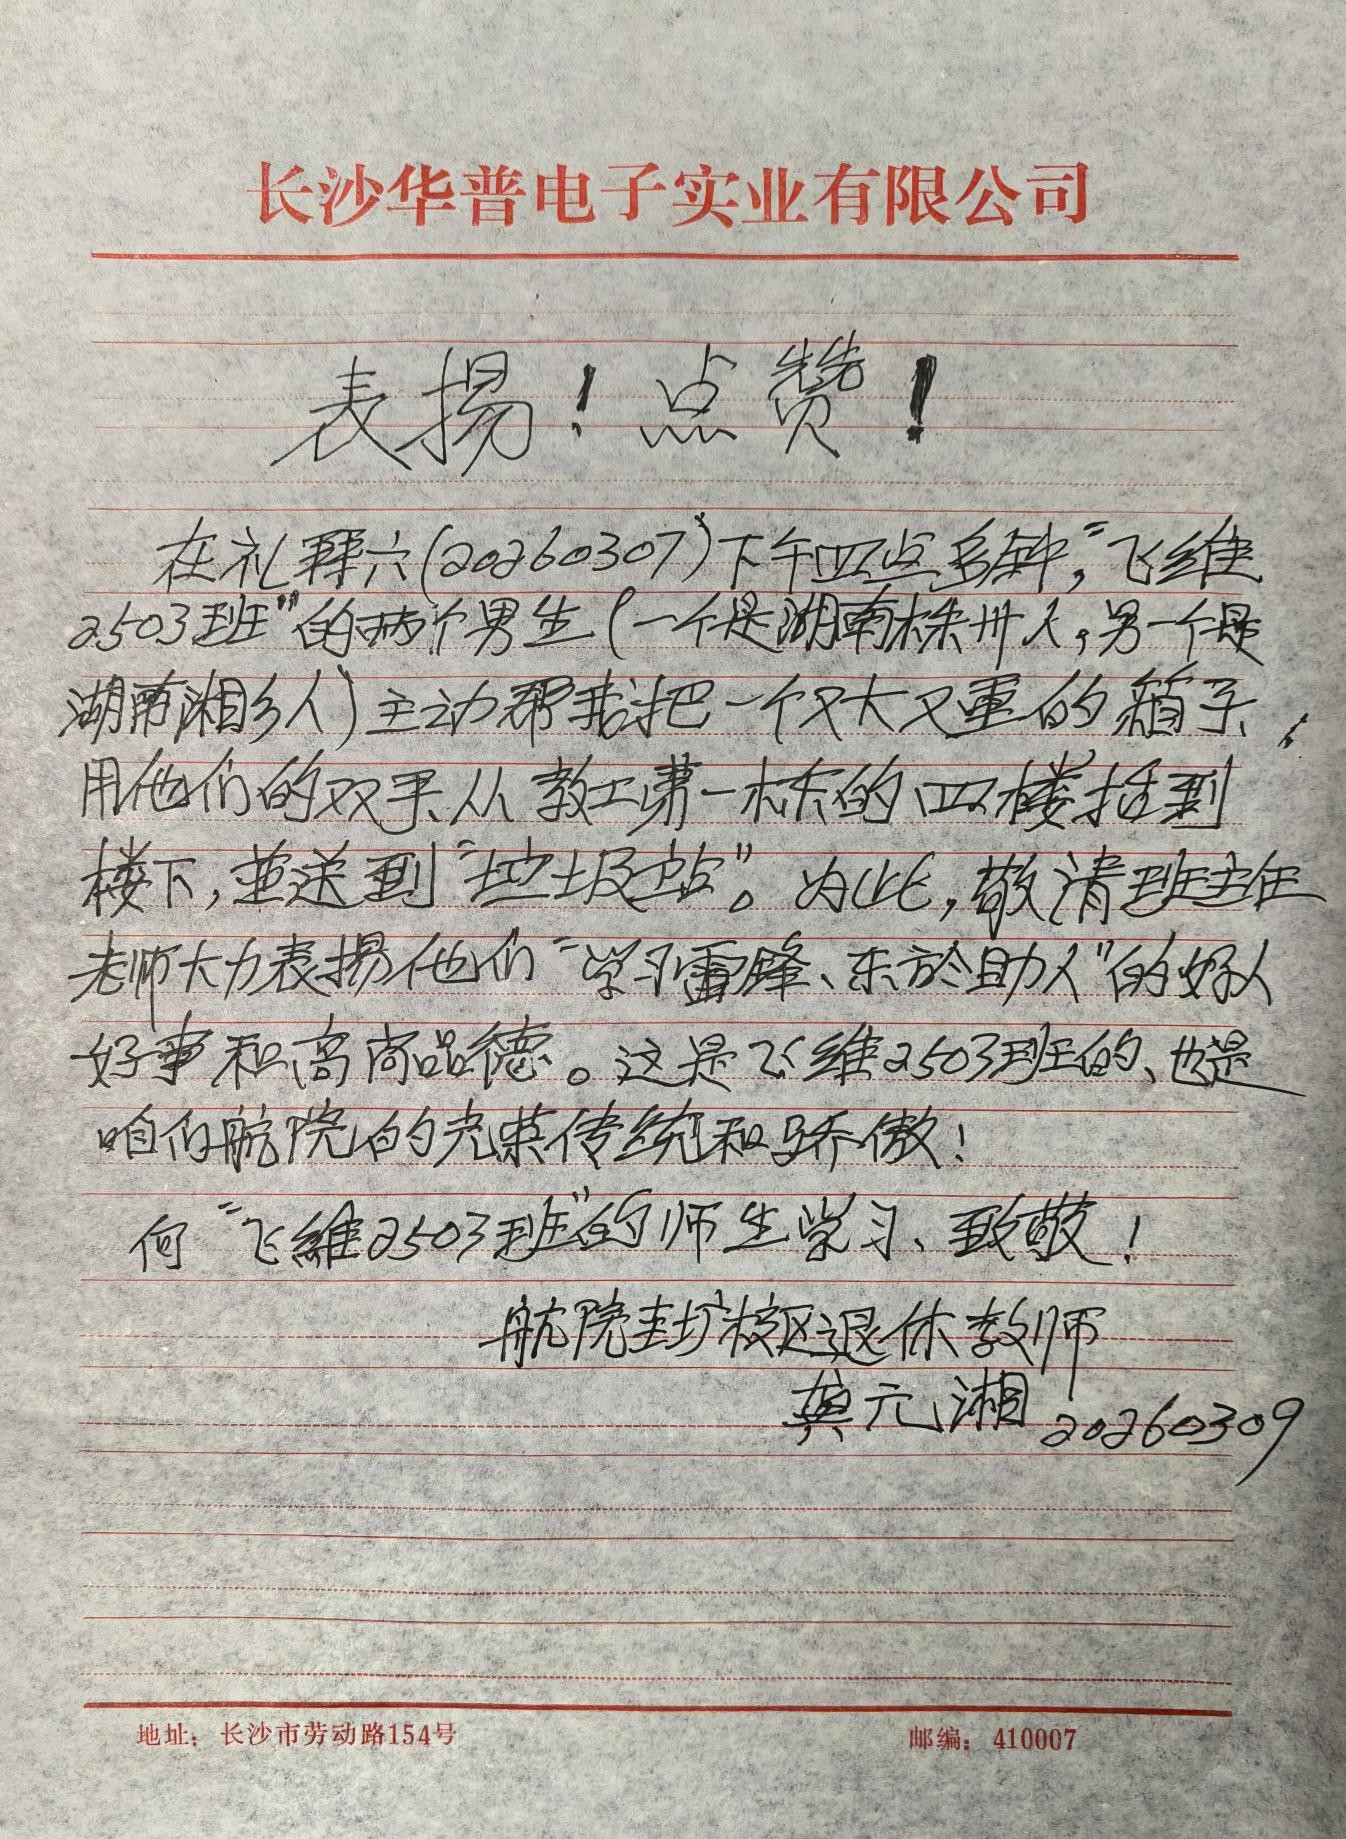 长沙华普电子实业有限公司
表揚！点赞！
在礼拜六(20260307)下午四点多钟，“飞维
2503班”的两个男生(一个是湖南株州人，另一个是
湖南湘乡人)主动帮我把一个又大又重的箱子，
用他们的双手从教工第一栋的四楼抬到
楼下，並送到“垃圾站”。为此，敬请班主任
老师大力表揚他们“学习雷锋、乐於助人”的好人
好事和高尚品德。这是飞维2503班的、也是
咱们航院的光荣传统和骄傲！
向“飞維2503班”的师生学习、致敬！
航院圭塘校区退休教师
龚元湘 20260309
地址：长沙市劳动路154号
邮编：410007